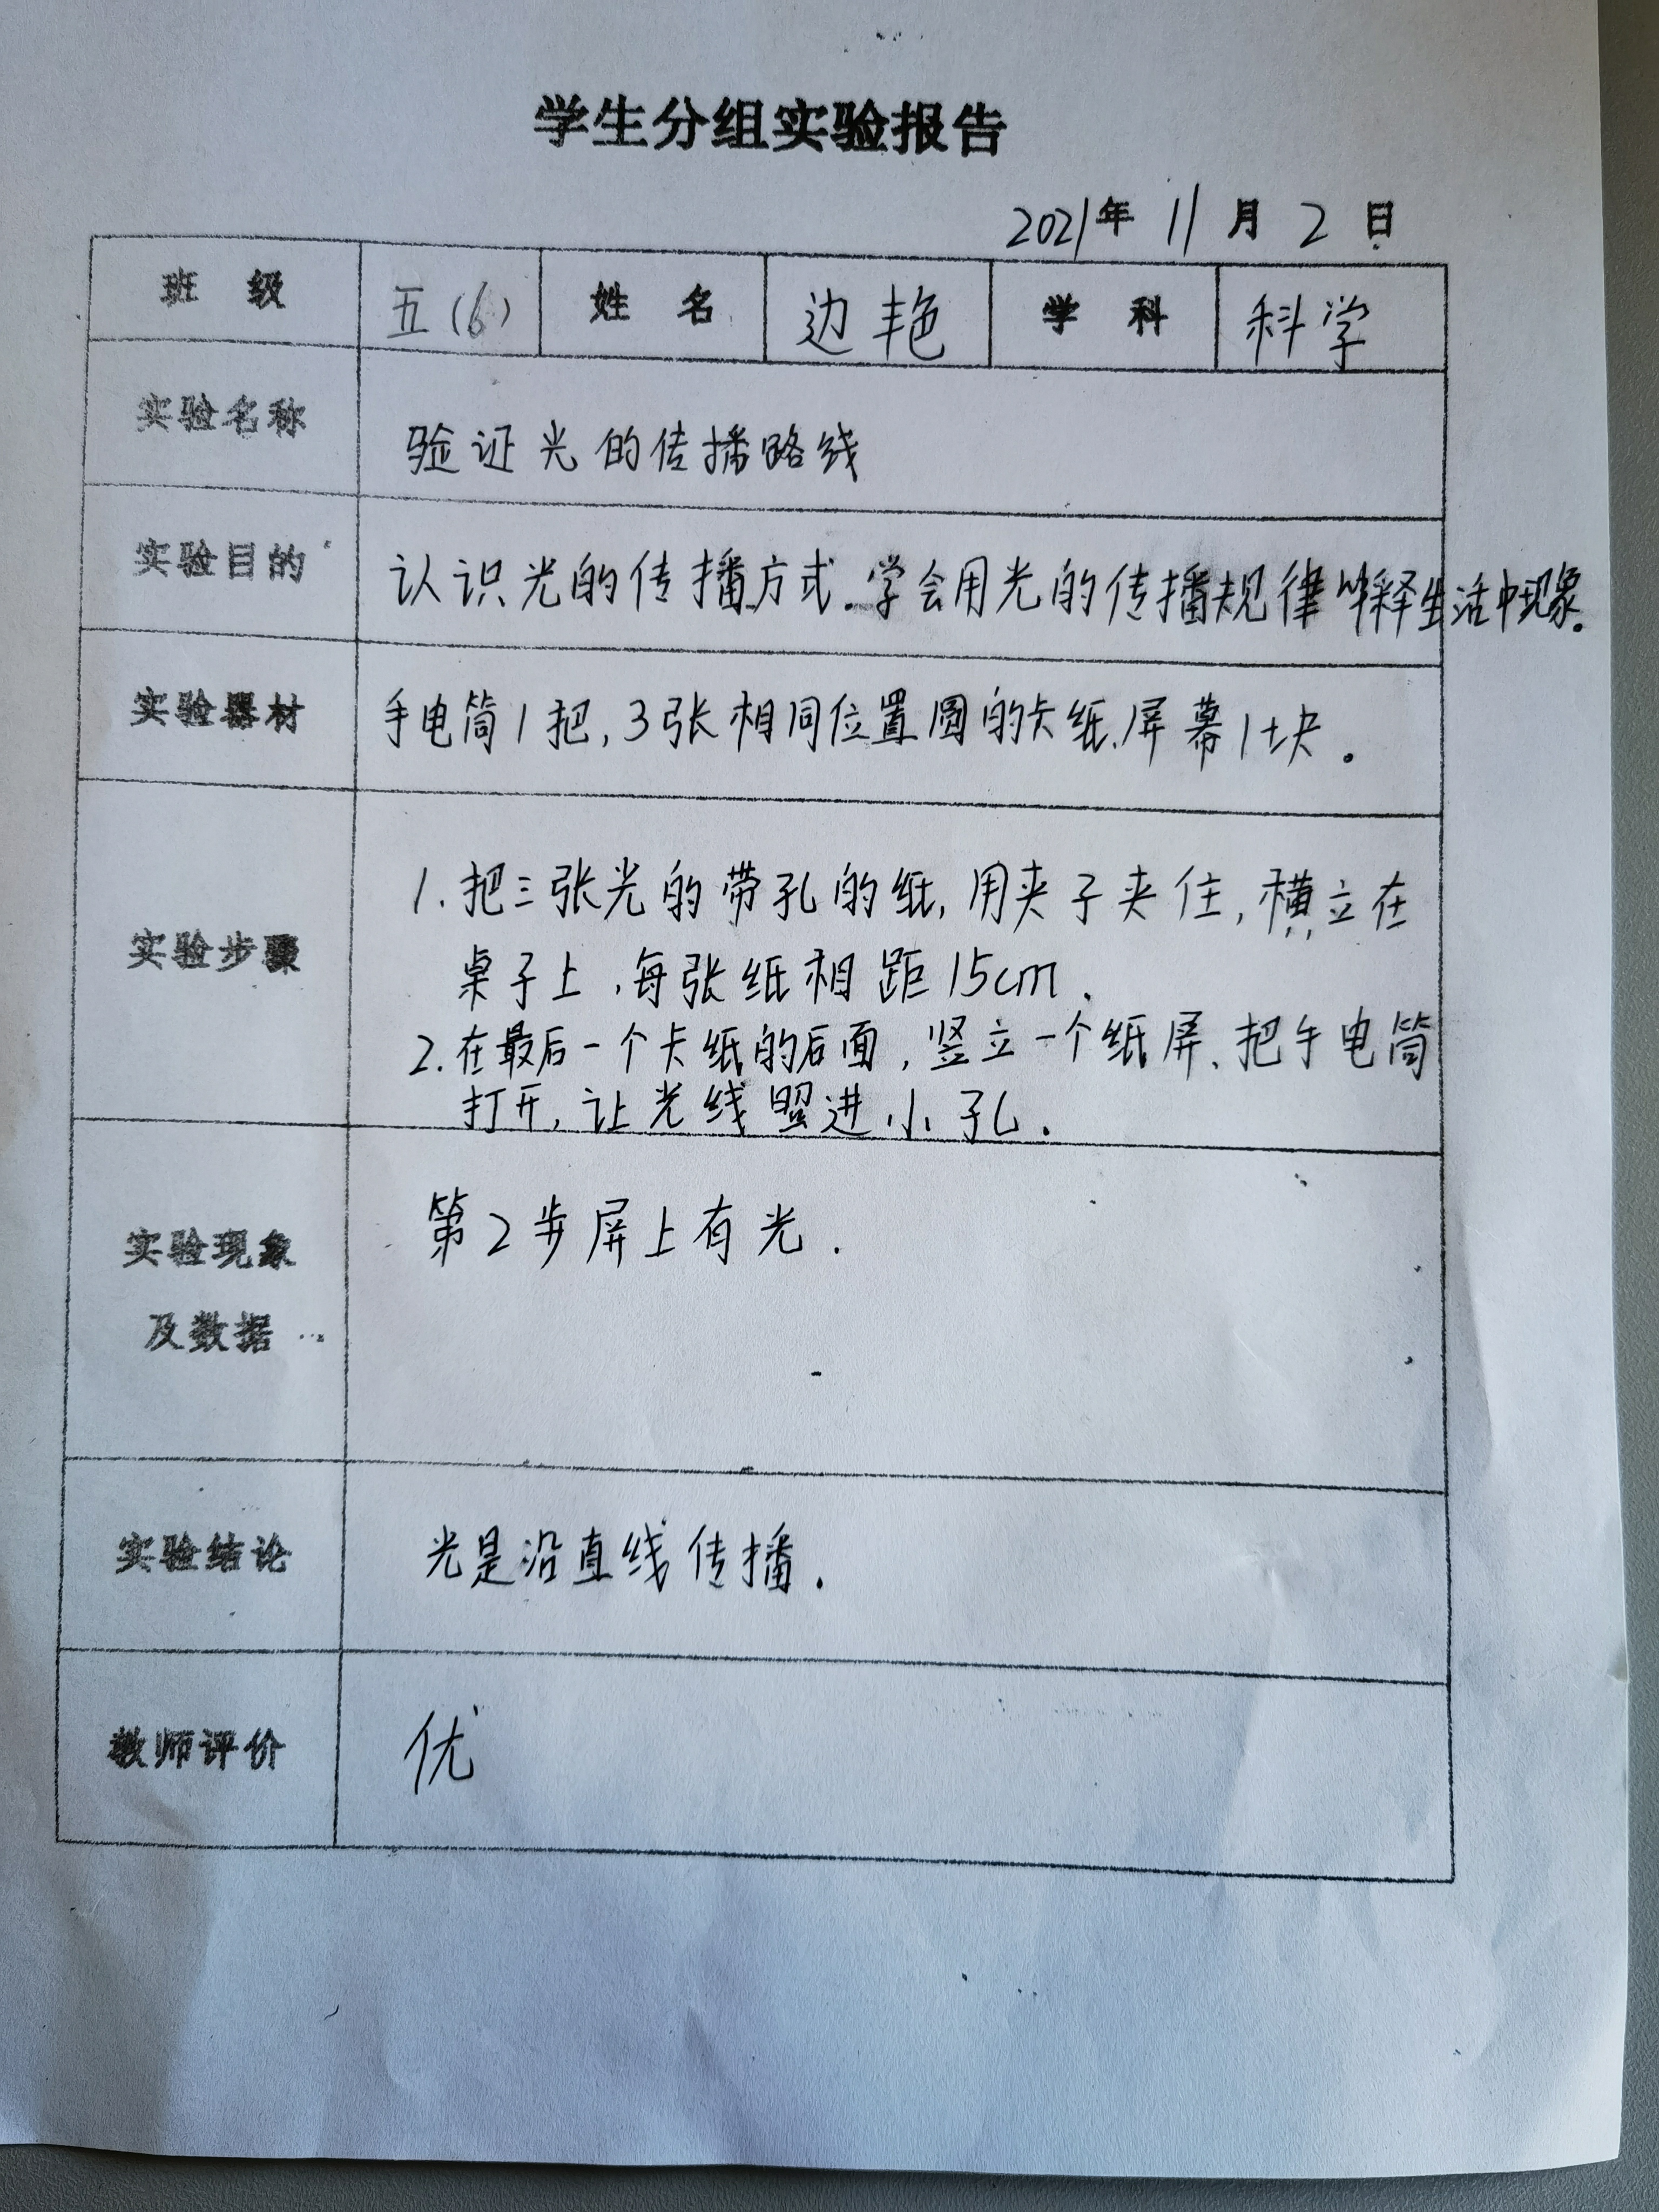 学生分组实验报告
2021年 11 月 2 日
班 级 五(6) 姓 名 边艳 学 科 科学
实验名称 验证光的传播路线
实验目的 认识光的传播方式.学会用光的传播规律解释生活中现象.
实验器材 手电筒1把,3张相同位置圆的卡纸.屏幕1块.
1.把三张光的带孔的纸,用夹子夹住,横立在
实验步骤
桌子上,每张纸相距15cm.
2.在最后一个卡纸的后面,竖立一个纸屏、把手电筒
打开,让光线照进小孔.
第2步屏上有光.
实验现象
及数据
实验结论 光是沿直线传播.
教师评价 优